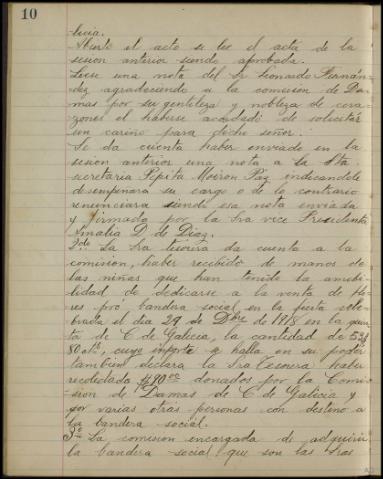 10
licia.
Abierto el acto se lee el acta de la
sesion anterior siendo aprobada.
Lese una nota del Sr Leonardo Fernán-
dez agradeciendo a la comision de Da-
mas por su gentileza y nobleza de cora-
zones el haberse acordado de solicitar
un cariño para dicho señor.
Se da cuenta haber enviado en la
sesion anterior una nota a la Sta.
secretaria Pepita Moiron Paz indicandole
desempeñara su cargo o de lo contrario
renunciara siendo esa nota enviada
y firmada por la Sra vice Presidenta
Amalia D. de Diaz.
2do. La Sra tesorera da cuenta a la
comision, haber recibido de manos de
las niñas que han tenido la amabi-
lidad de dedicarse a la venta de flo-
res pró bandera social en la fiesta cele-
brada el dia 29 de Dbre de 1918 en la quin-
ta de C de Galicia, la cantidad de 53$
80 cts, cuyo importe se halla en su poder
tambien declara la Sra Tesorera haber
recolectado $ 90.00 donados por la Comi-
sion de Damas de C de Galicia y
por varias otras personas con destino a
la bandera social.
3º La comision encargada de adquirir
la bandera social que son las Sras